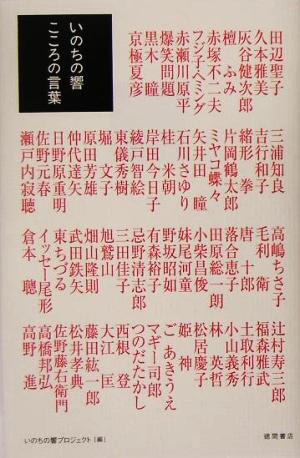 いのちの響
こころの言葉
田辺聖子
久本雅美
灰谷健次郎
檀ふみ
赤塚不二夫
フジ子ヘミング
赤瀬川原平
爆笑問題
黒木瞳
京極夏彦
三浦知良
吉行和子
緒形拳
片岡鶴太郎
ミヤコ蝶々
矢井田瞳
石川さゆり
桂米朝
岸田今日子
綾戸智絵
東儀秀樹
堀文子
原田芳雄
仲代達矢
日野原重明
佐野元春
瀬戸内寂聴
高嶋ちさ子
毛利衛
唐十郎
落合恵子
田原総一朗
小柴昌俊
妹尾河童
野坂昭如
有森裕子
忌野清志郎
三田佳子
旭鷲山
畑山隆則
武田鉄矢
東ちづる
イッセー尾形
倉本聰
辻村寿三郎
福森雅武
土取利行
小山義秀
林英哲
松居慶子
姫神
ごあきうえ
マギー司郎
つのだたかし
西根登
大江匡
藤田紘一郎
松井孝典
佐野藤右衛門
高橋邦弘
高野進
いのちの響プロジェクト[編]
徳間書店